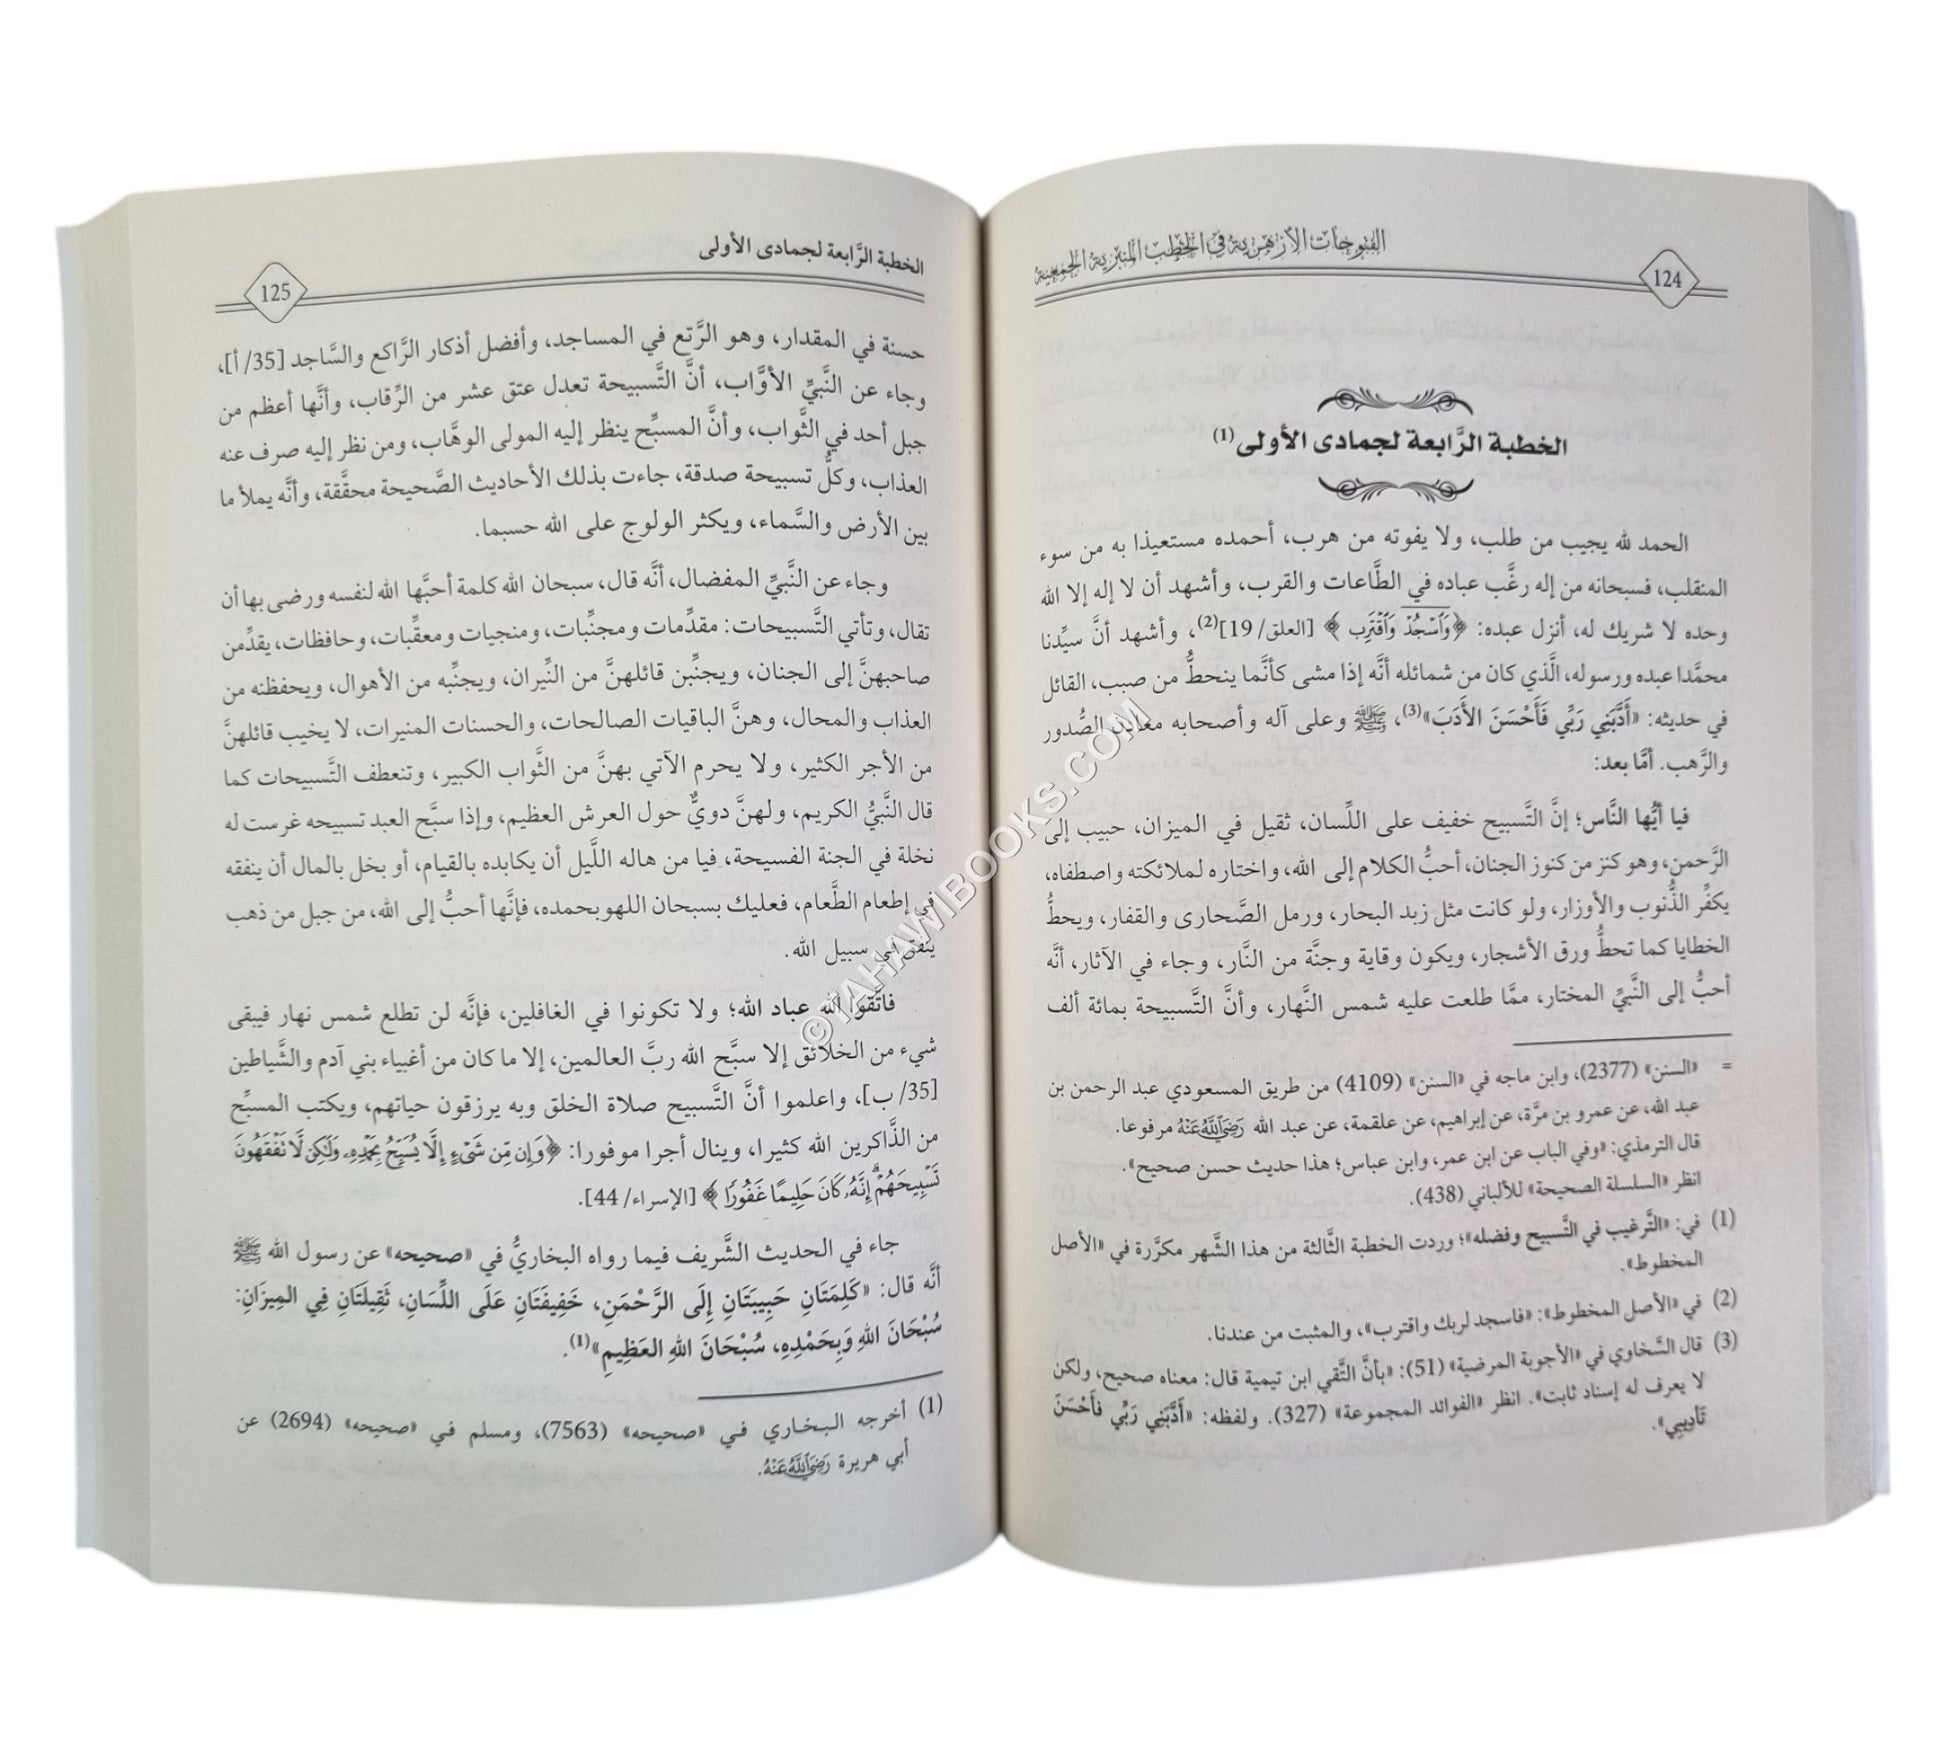 الفتوحات الأزهرية في الخطب المنبرية الجمعية
124
الخطبة الرَّابعة لجمادى الأولى(1)
الحمد لله يجيب من طلب، ولا يفوته من هرب، أحمده مستعيذا به من سوء
المنقلب، فسبحانه من إله رغَّب عباده في الطَّاعات والقرب، وأشهد أن لا إله إلا الله
وحده لا شريك له، أنزل عبده: ﴿وَٱسۡجُدۡۤ وَٱقۡتَرِب﴾ [العلق/ 19](2)، وأشهد أنَّ سيِّدنا
محمَّدا عبده ورسوله، الَّذي كان من شمائله أنَّه إذا مشى كأنَّما ينحطُّ من صبب، القائل
في حديثه: «أَدَّبَنِي رَبِّي فَأَحْسَنَ الأَدَبَ»(3)، ﷺ وعلى آله وأصحابه معادن الصُّدور
والرَّهب. أمَّا بعد:
فيا أيُّها النَّاس؛ إنَّ التَّسبيح خفيف على اللِّسان، ثقيل في الميزان، حبيب إلى
الرَّحمن، وهو كنز من كنوز الجنان، أحبُّ الكلام إلى الله، واختاره لملائكته واصطفاه،
يكفِّر الذُّنوب والأوزار، ولو كانت مثل زبد البحار، ورمل الصَّحارى والقفار، ويحطُّ
الخطايا كما تحطُّ ورق الأشجار، ويكون وقاية وجنَّة من النَّار، وجاء في الآثار، أنَّه
أحبُّ إلى النَّبيِّ المختار، ممَّا طلعت عليه شمس النَّهار، وأنَّ التَّسبيحة بمائة ألف
= «السنن» (2377)، وابن ماجه في «السنن» (4109) من طريق المسعودي عبد الرحمن بن
عبد الله، عن عمرو بن مرَّة، عن إبراهيم، عن علقمة، عن عبد الله رَضِيَ اللَّهُ عَنْهُ مرفوعا.
قال الترمذي: «وفي الباب عن ابن عمر، وابن عباس؛ هذا حديث حسن صحيح».
انظر «السلسلة الصحيحة» للألباني (438).
(1) في: «التَّرغيب في التَّسبيح وفضله»؛ وردت الخطبة الثَّالثة من هذا الشَّهر مكرَّرة في «الأصل
المخطوط».
(2) في «الأصل المخطوط»: «فاسجد لربك واقترب»، والمثبت من عندنا.
(3) قال السَّخاوي في «الأجوبة المرضية» (51): «بأنَّ التَّقي ابن تيمية قال: معناه صحيح، ولكن
لا يعرف له إسناد ثابت». انظر «الفوائد المجموعة» (327). ولفظه: «أَدَّبَنِي رَبِّي فَأَحْسَنَ
تَأْدِيبِي».
الخطبة الرَّابعة لجمادى الأولى
125
حسنة في المقدار، وهو الرَّتع في المساجد، وأفضل أذكار الرَّاكع والسَّاجد [35/ أ]،
وجاء عن النَّبيِّ الأوَّاب، أنَّ التَّسبيحة تعدل عتق عشر من الرِّقاب، وأنَّها أعظم من
جبل أحد في الثَّواب، وأنَّ المسبِّح ينظر إليه المولى الوهَّاب، ومن نظر إليه صرف عنه
العذاب، وكلُّ تسبيحة صدقة، جاءت بذلك الأحاديث الصَّحيحة محقَّقة، وأنَّه يملأ ما
بين الأرض والسَّماء، ويكثر الولوج على الله حسبما.
وجاء عن النَّبيِّ المفضال، أنَّه قال، سبحان الله كلمة أحبَّها الله لنفسه ورضى بها أن
تقال، وتأتي التَّسبيحات: مقدِّمات ومجنِّبات، ومنجيات ومعقِّبات، وحافظات، يقدِّمن
صاحبهنَّ إلى الجنان، ويجنِّبن قائلهنَّ من النِّيران، ويجنِّبه من الأهوال، ويحفظنه من
العذاب والمحال، وهنَّ الباقيات الصالحات، والحسنات المنيرات، لا يخيب قائلهنَّ
من الأجر الكثير، ولا يحرم الآتي بهنَّ من الثَّواب الكبير، وتنعطف التَّسبيحات كما
قال النَّبيُّ الكريم، ولهنَّ دويٌّ حول العرش العظيم، وإذا سبَّح العبد تسبيحه غرست له
نخلة في الجنة الفسيحة، فيا من هاله اللَّيل أن يكابده بالقيام، أو بخل بالمال أن ينفقه
في إطعام الطَّعام، فعليك بسبحان اللهوبحمده، فإنَّها أحبُّ إلى الله، من جبل من ذهب
ينفق في سبيل الله.
فاتَّقوا الله عباد الله؛ ولا تكونوا في الغافلين، فإنَّه لن تطلع شمس نهار فيبقى
شيء من الخلائق إلا سبَّح الله ربَّ العالمين، إلا ما كان من أغبياء بني آدم والشَّياطين
[35/ ب]، واعلموا أنَّ التَّسبيح صلاة الخلق وبه يرزقون حياتهم، ويكتب المسبِّح
من الذَّاكرين الله كثيرا، وينال أجرا موفورا: ﴿وَإِن مِّن شَىۡءٍ إِلَّا يُسَبِّحُ بِحَمۡدِهِۦ وَلَٰكِن لَّا تَفۡقَهُونَ
تَسۡبِيحَهُمۡۗ إِنَّهُۥ كَانَ حَلِيمًا غَفُورًا﴾ [الإسراء/ 44].
جاء في الحديث الشَّريف فيما رواه البخاريُّ في «صحيحه» عن رسول الله ﷺ
أنَّه قال: «كَلِمَتَانِ حَبِيبَتَانِ إِلَى الرَّحْمَنِ، خَفِيفَتَانِ عَلَى اللِّسَانِ، ثَقِيلَتَانِ فِي المِيزَانِ:
سُبْحَانَ اللهِ وَبِحَمْدِهِ، سُبْحَانَ اللهِ العَظِيمِ»(1).
(1) أخرجه البخاري في «صحيحه» (7563)، ومسلم في «صحيحه» (2694) عن
أبي هريرة رَضِيَ اللَّهُ عَنْهُ.
©TAHAWIBOOKS.COM